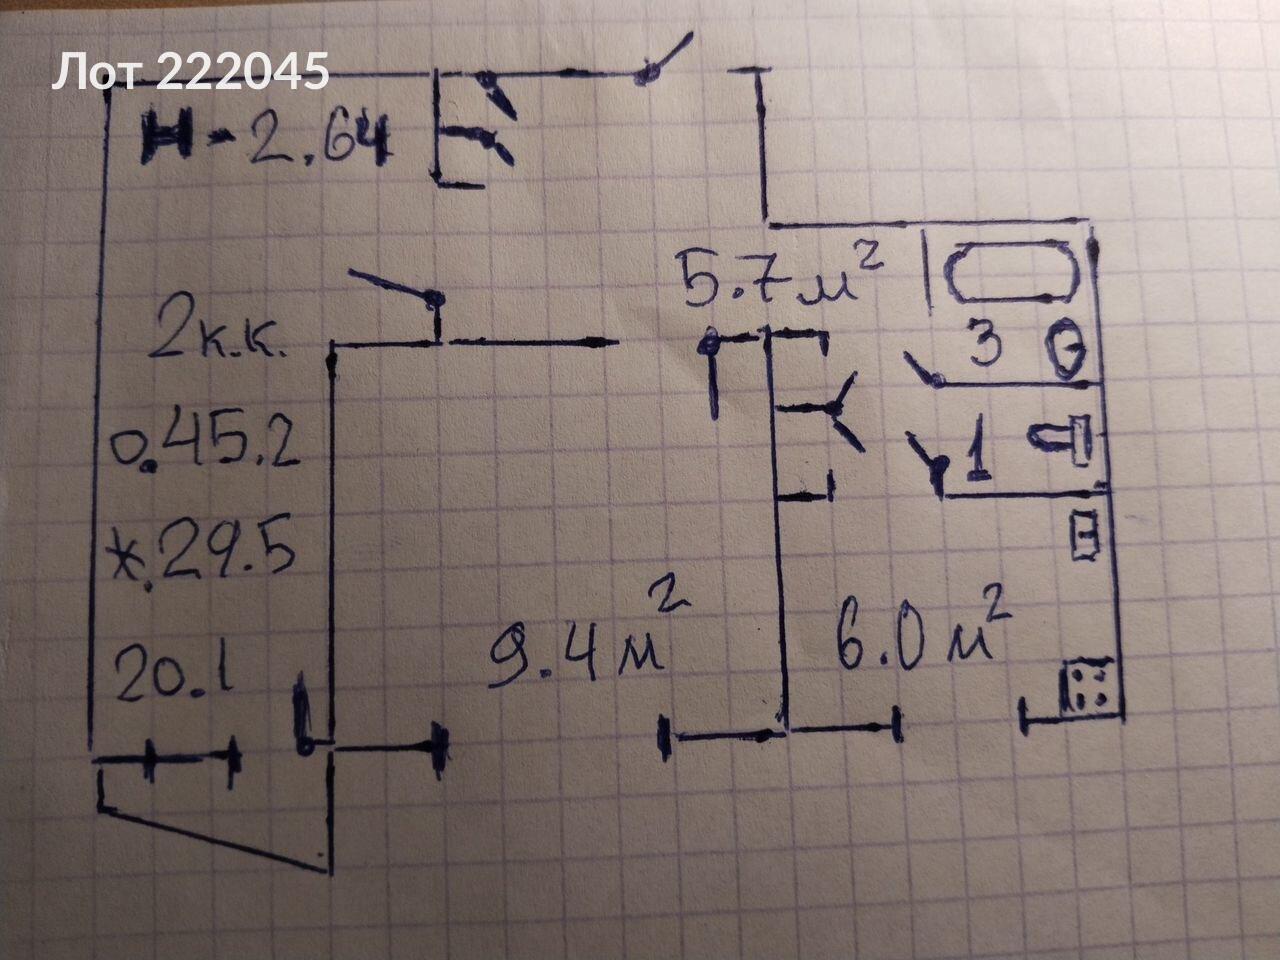 Лот 222045
H-2.64
5.7м²
2к.к.
3
о.45.2
1
ж.29.5
20.1
9.4м²
6.0м²